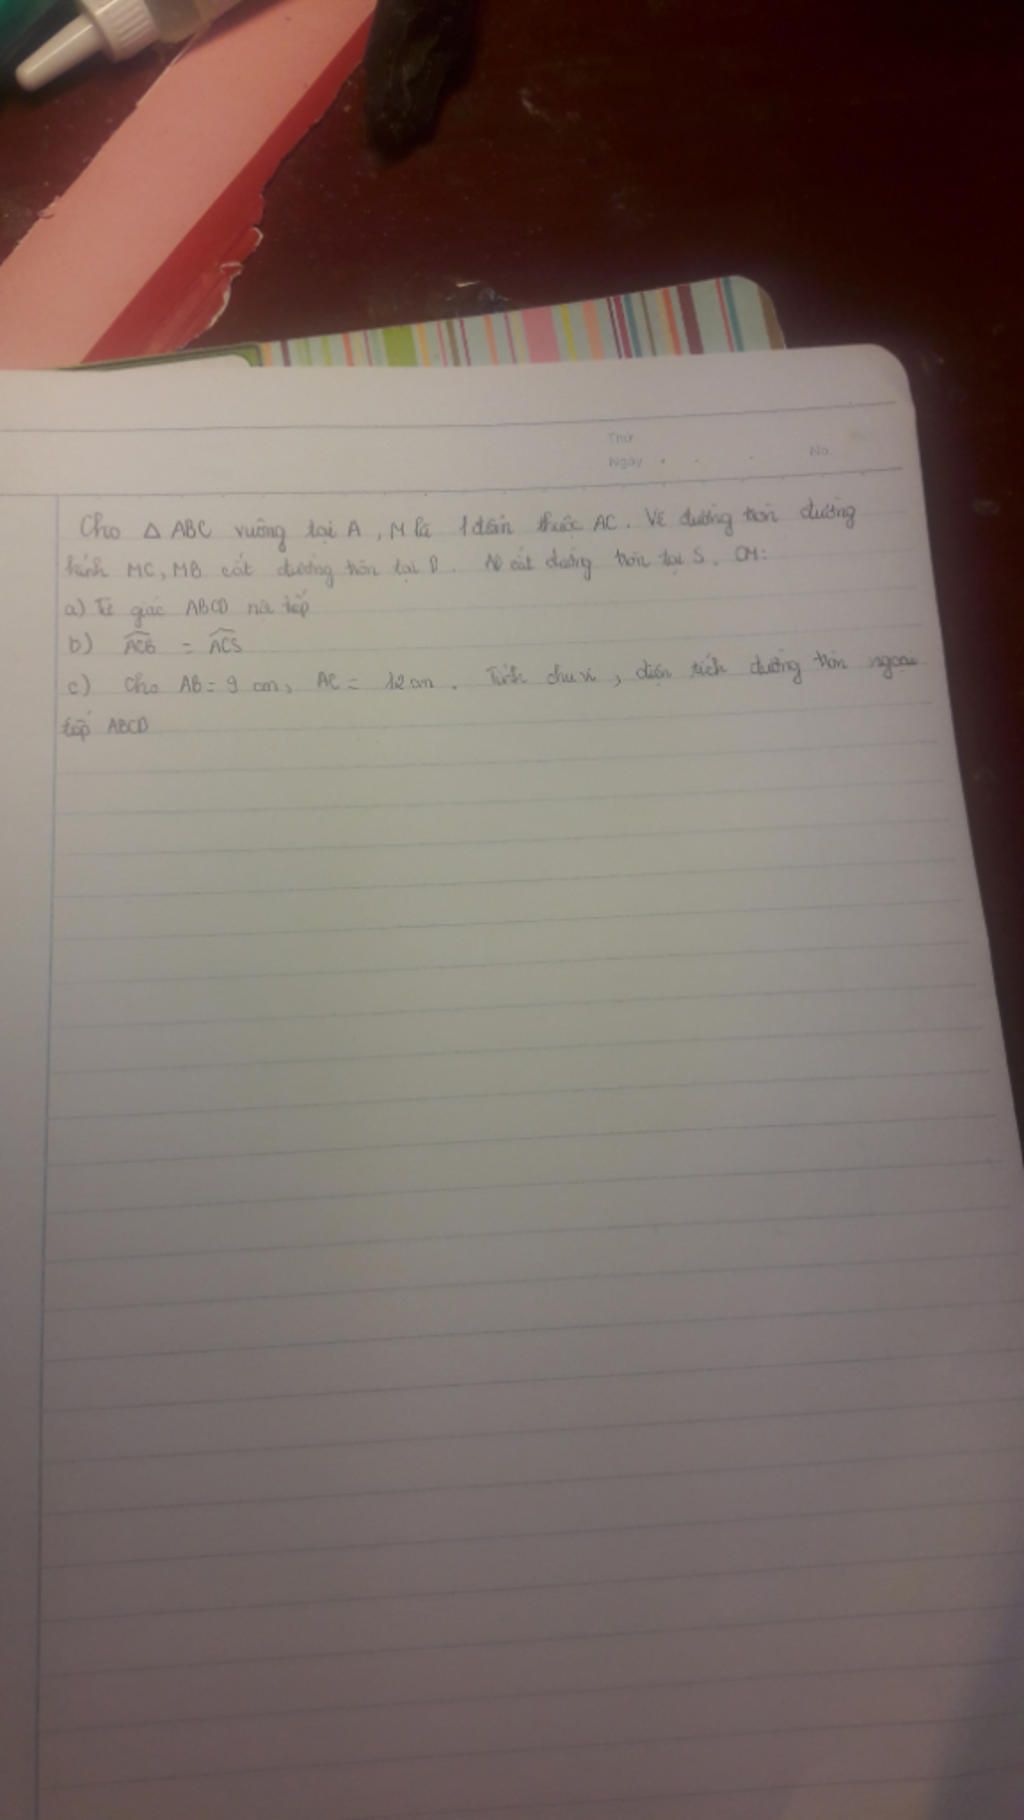 Thứ
Ngày No.
Cho Δ ABC vuông tại A, M là 1 điểm thuộc AC. Vẽ đường tròn đường
kính MC, MB cắt đường tròn tại D. AD cắt đường tròn tại S. CM:
a) Tứ giác ABCD nội tiếp
b) \widehat{ACB} = \widehat{ACS}
c) Cho AB = 9 cm, AC = 12 cm. Tính chu vi, diện tích đường tròn ngoại
tiếp ABCD